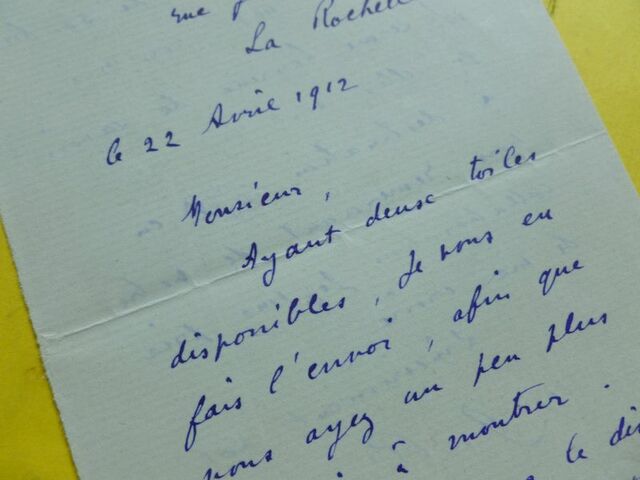 rue
La Rochell
le 22 Avril 1912
Monsieur,
Ayant deux toiles
disponibles, je vous en
fais l'envoi, afin que
vous ayez un peu plus
à montrer.
le di